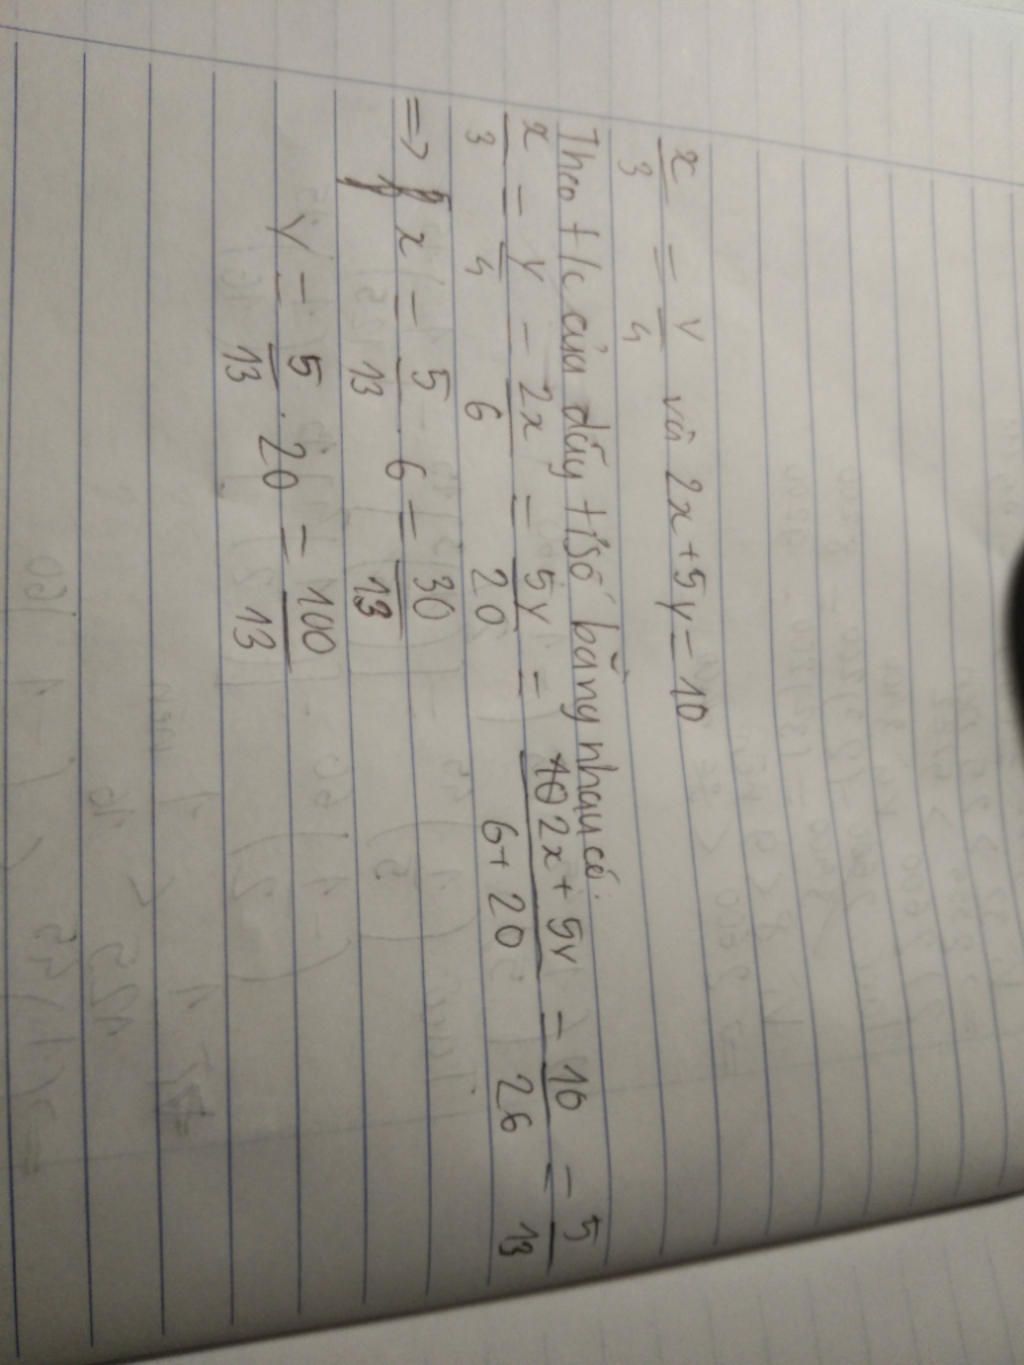 x/3 = y/4 và 2x+5y=10
Theo t/c của dãy tỉ số bằng nhau có:
x/3 = y/4 = 2x/6 = 5y/20 = 2x+5y/6+20 = 10/26 = 5/13
=> x = 5/13 . 6 = 30/13
y = 5/13 . 20 = 100/13